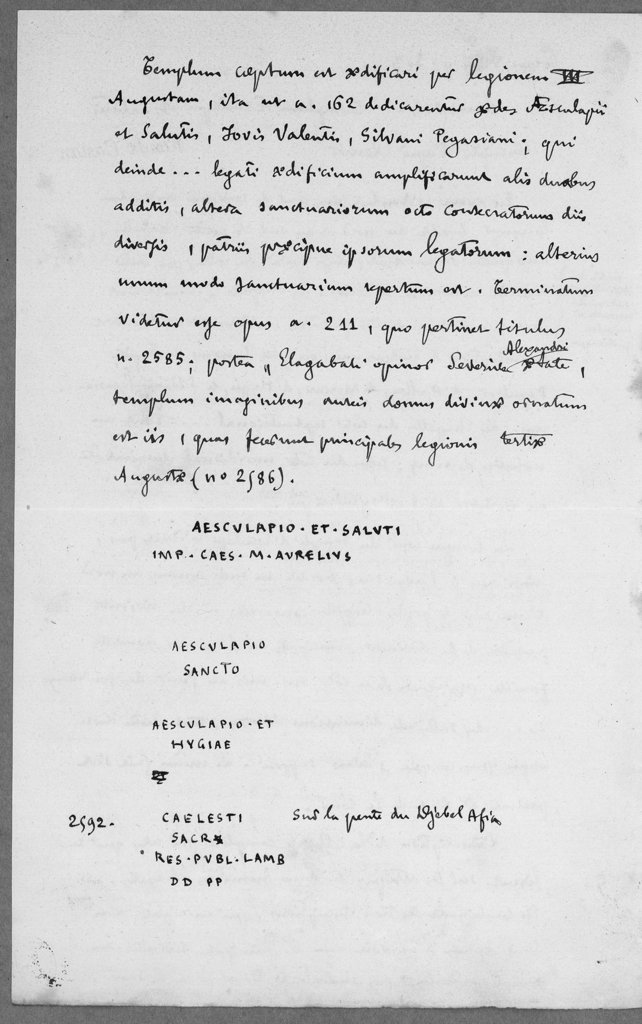 Templum cœptum est ædificari per legionem III
Augustam, ita ut a. 162 dedicarentur ædes Æsculapii
et Salutis, Jovis Valentis, Silvani Pegasiani; qui
deinde ... legati ædificium amplificarunt alis duabus
additis, altera sanctuariorum octo consecratorum diis
diversis, patriis præcipue ipsorum legatorum : alterius
unum modo sanctuarium repertum est. Terminatum
videtur esse opus a. 211, quo pertinet titulus
n. 2585; postea, Elagabali opinor Severive Alexandri ætate,
templum imaginibus aureis domus divinæ ornatum
est iis, quas fecerunt principales legionis tertiæ
Augustæ (no 2586).
AESCVLAPIO · ET · SALVTI
IMP · CAES · M · AVRELIVS
AESCVLAPIO
SANCTO
AESCVLAPIO · ET
HYGIAE
2592. CAELESTI Sur la pente du Djebel Afia
SACR
RES · PVBL · LAMB
DD PP